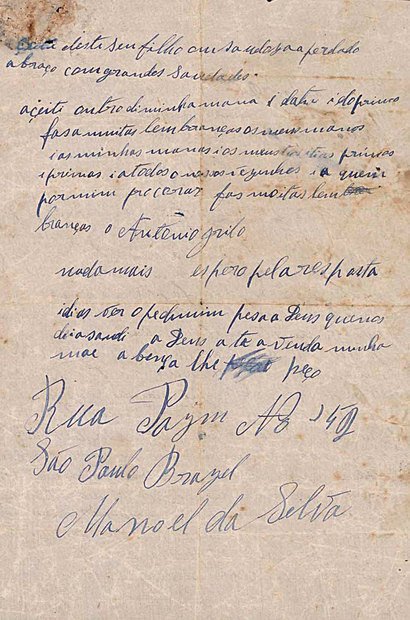 deste seu filho um saudoso a perdado
abraço com grandes Saudades.
açeite outro di minha mana i datia i do primo
fasa muitas lembranças os meus manos
i as minhas manas i os meus tios tias primos
i primas i a todos o nosos vezinhos i a quem
por mim procorar fas moitas lem
branças o António grilo
nada mais espero pela resposta
idios Dor o pedi mim pesa a Deus que nos
dia saudi a Deus a ta a venda minha
mae a berça lhe peço
Rua Paym Nº 142
São Paulo Brazil
Manoel da Silva